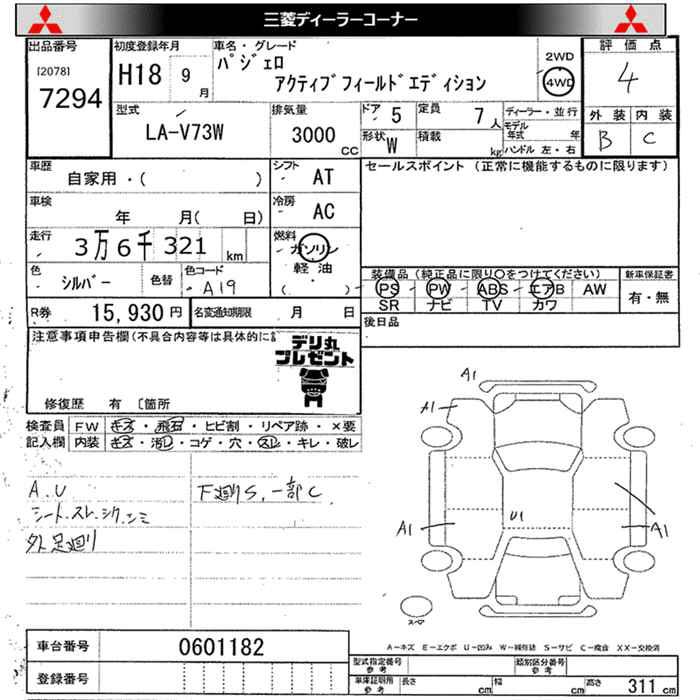 三菱ディーラーコーナー
出品番号
[2078]
7294
初度登録年月
H18 9 月
車名・グレード
パジェロ
アクティブフィールドエディション
2WD
4WD
評価点
4
外装 内装
B C
型式
LA-V73W
排気量
3000 cc
ドア 5
定員 7 人
形状 W
積載 kg
ディーラー・並行
モデル年式 年
ハンドル 左・右
車歴
自家用・( )
シフト AT
車検
年 月( 日)
冷房 AC
走行
3万6千321 km
燃料 ガソリン
軽油
( )
色 シルバー
色替
色コード
A19
セールスポイント (正常に機能するものに限ります)
装備品(純正品に限り○をつけてください)
PS PW ABS エアB AW
SR ナビ TV カワ
新車保証書
有・無
R券 15,930 円
名変通知期限 月 日
後日品
注意事項申告欄(不具合内容等は具体的に
デリ丸
プレゼント
修復歴 有 〔箇所
検査員
記入欄
FW キズ・飛石・ヒビ割・リペア跡・×要
内装 キズ・汚レ・コゲ・穴・スレ・キレ・破レ
A.U
シート.スレ.シワ.シミ
外.足廻り
下廻りS.一部C
A1
A1
A1
U1
A1
スペア
A-キズ E-エクボ U-凹み W-補修跡 S-サビ C-腐食 XX-交換済
車台番号 0601182
登録番号
型式指定番号
参考
類別区分番号
参考
車庫証明用
参考
長さ cm
幅 cm
高さ 311 cm